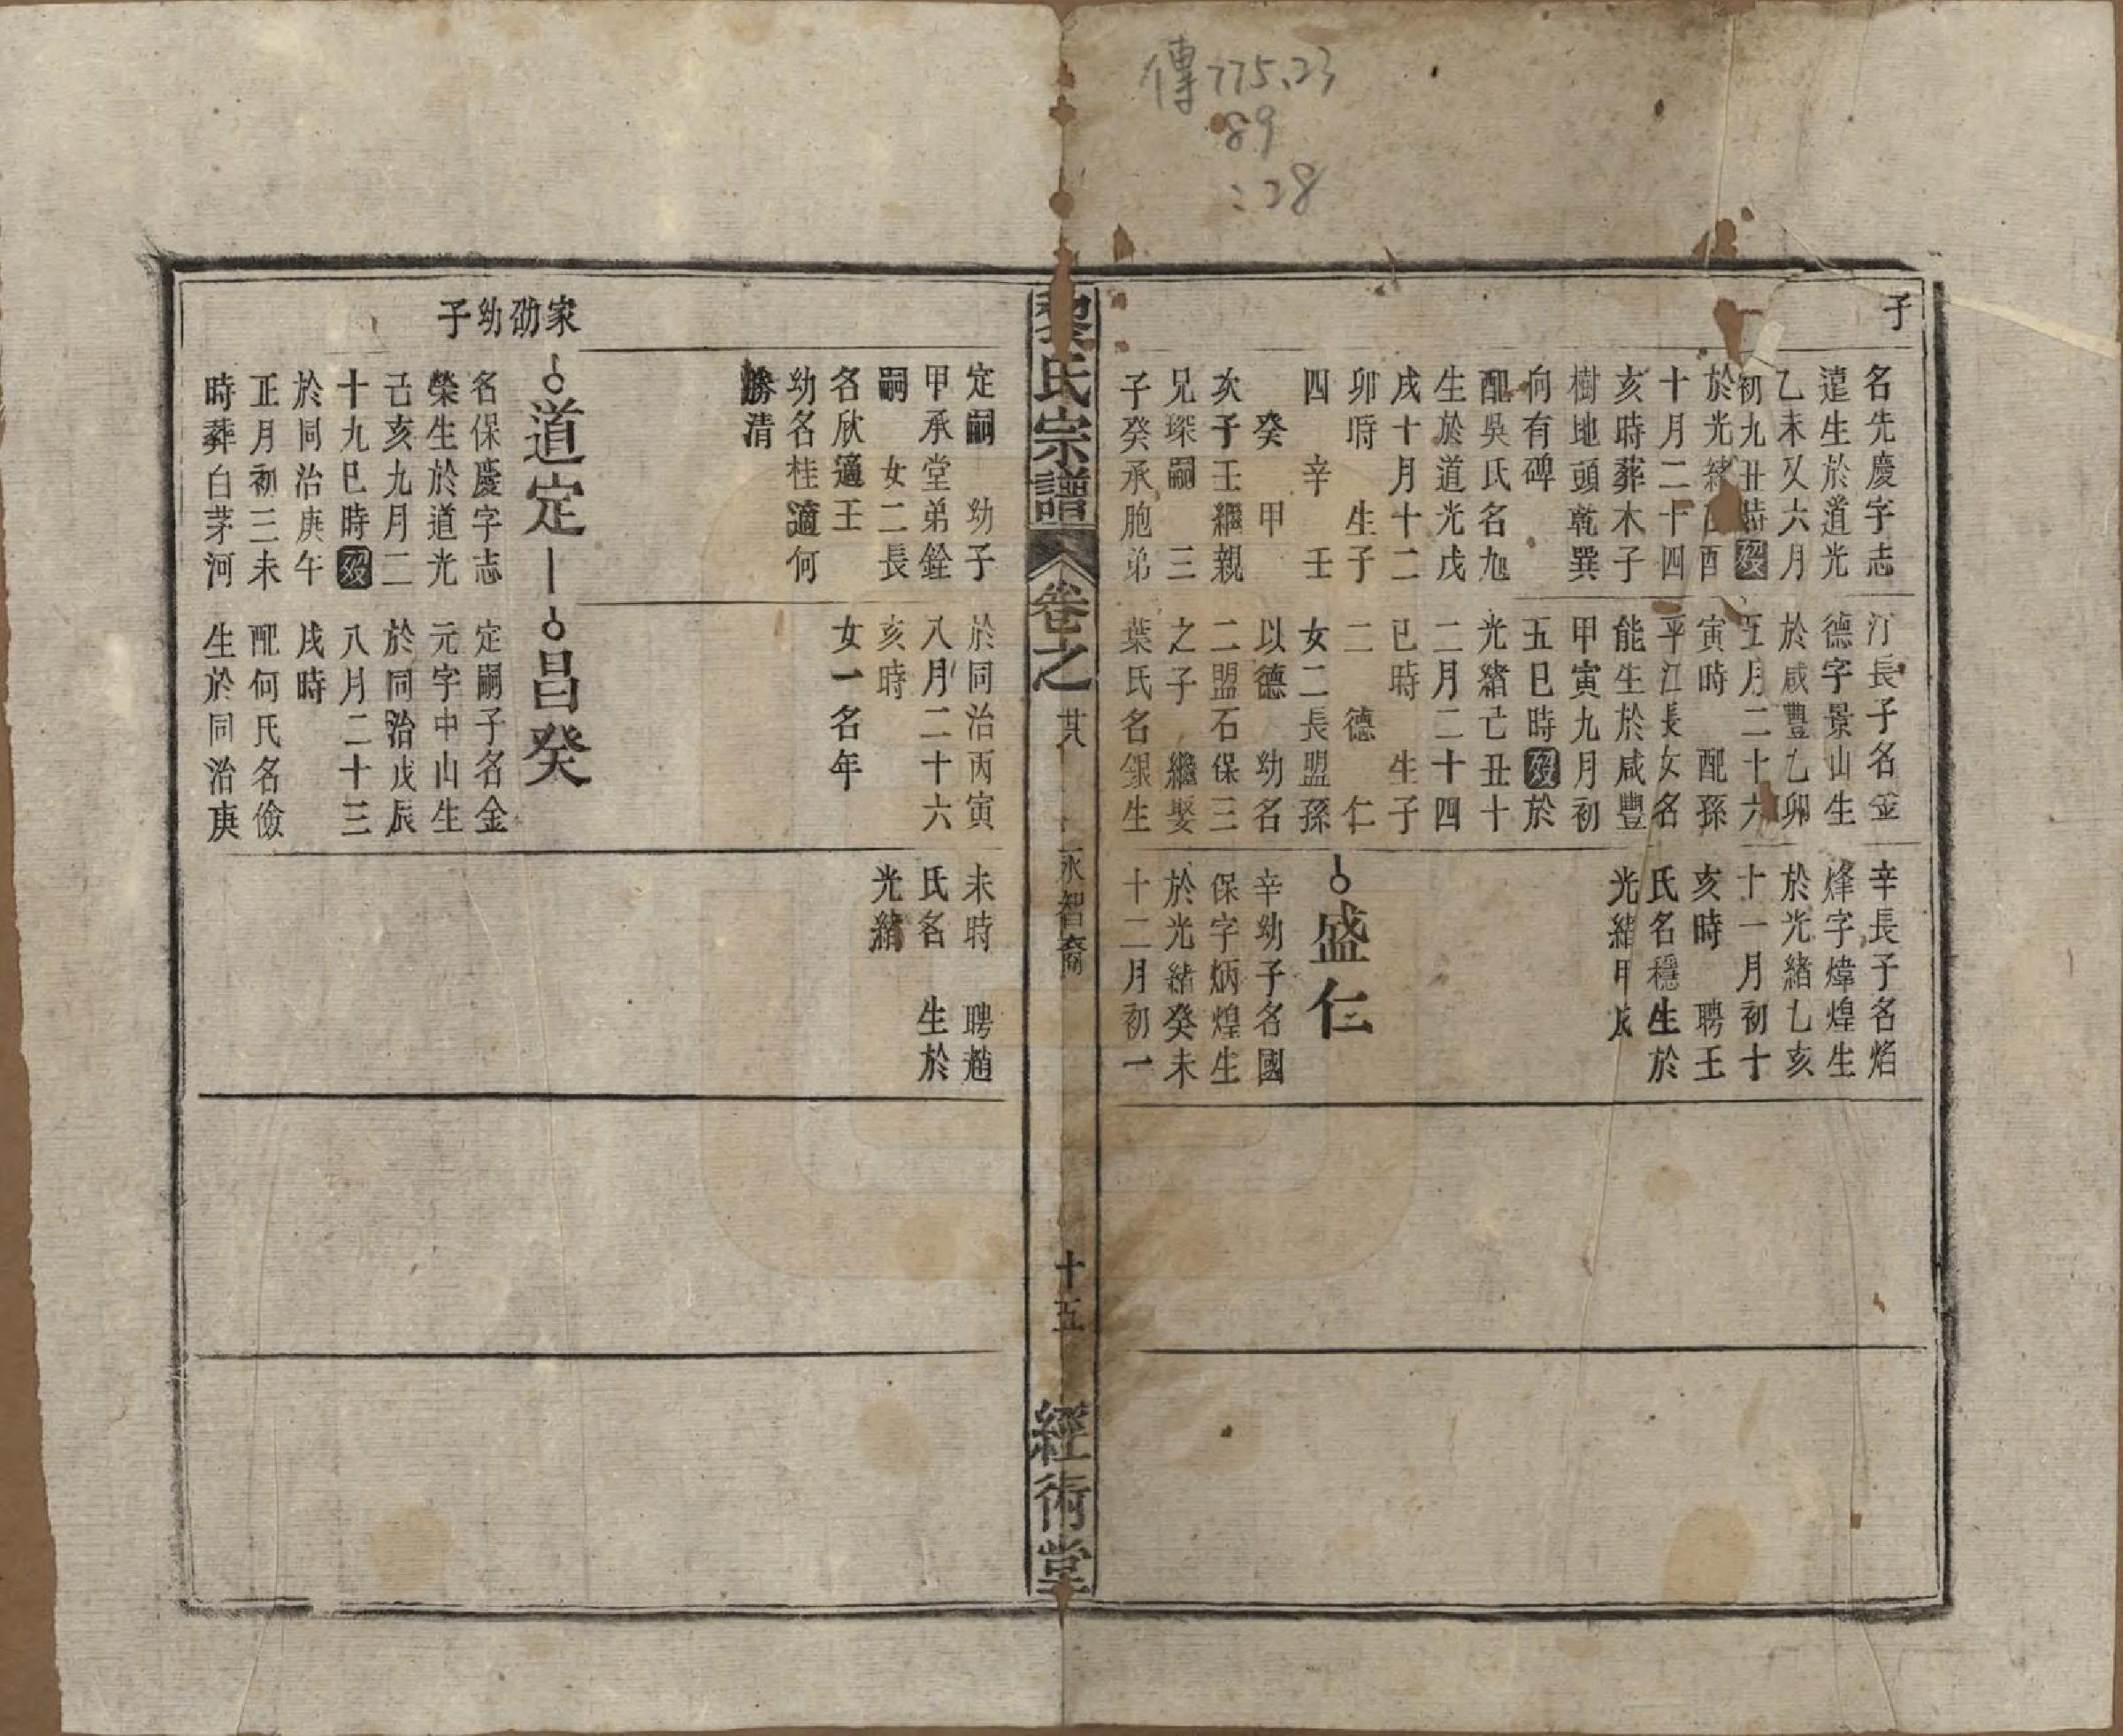 傳775.23
89
:28
子
名先慶字志
遠生於道光
乙未又六月
初九丑時歿
於光緒酉
十月二十四
亥時葬木子
樹地頭乾巽
向有碑
配吳氏名旭
生於道光戊
戌十月十二
卯時 生子
四 辛 壬
癸 甲
次子壬繼親
兄琛嗣 三
子癸承胞弟
汀長子名金
德字景山生
於咸豐乙卯
五月二十六
寅時 配孫
平江長女名
能生於咸豐
甲寅九月初
五巳時歿於
光緒己丑十
二月二十四
巳時 生子
二 德 仁
女二長盟孫
以德 幼名
二盟石保三
之子 繼娶
葉氏名銀生
辛長子名焰
烽字煒煌生
於光緒乙亥
十一月初十
亥時 聘王
氏名穩生於
光緒甲戌
盛仁
辛幼子名國
保字炳煌生
於光緒癸未
十二月初一
黎氏宗譜 卷之 其 永智裔 十五 經術堂
定嗣 幼子
甲承堂弟銓
嗣 女二長
名欣適王
幼名桂適何
勝清
於同治丙寅
八月二十六
亥時
女一名年
未時 聘趙
氏名 生於
光緒
家劭幼子
道定
名保慶字志
榮生於道光
己亥九月二
十九巳時歿
於同治庚午
正月初三未
時葬白茅河
昌癸
定嗣子名金
元字中山生
於同治戊辰
八月二十三
戌時
配何氏名儉
生於同治庚